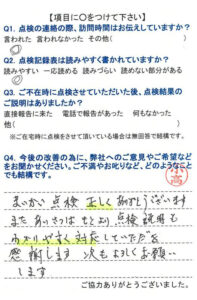 【項目に○をつけて下さい】
Q1. 点検の連絡の際、訪問時間はお伝えしていますか?
言われた 言われなかった その他(
)
Q2. 点検記録表は読みやすく書かれていますか?
読みやすい 一応読める 読みづらい 読めない部分がある
Q3. ご不在時に点検させていただいた後、点検結果の
ご説明はありましたか?
直接報告に来た 電話で報告があった 何もなかった
他( )
※ご在宅時に点検をさせて頂いている場合は無回答で結構です。
Q4. 今後の改善の為に、弊社へのご意見やご希望などを
お聞かせください。ご不満やお叱りなど、どのようなことでも
結構です。
点検 正しく ありがとうございます
また あいさつは もとより 点検 説明も
わかりやすく 対応していただき
感謝します 次もよろしくお願い
します
ご協力ありがとうございました。